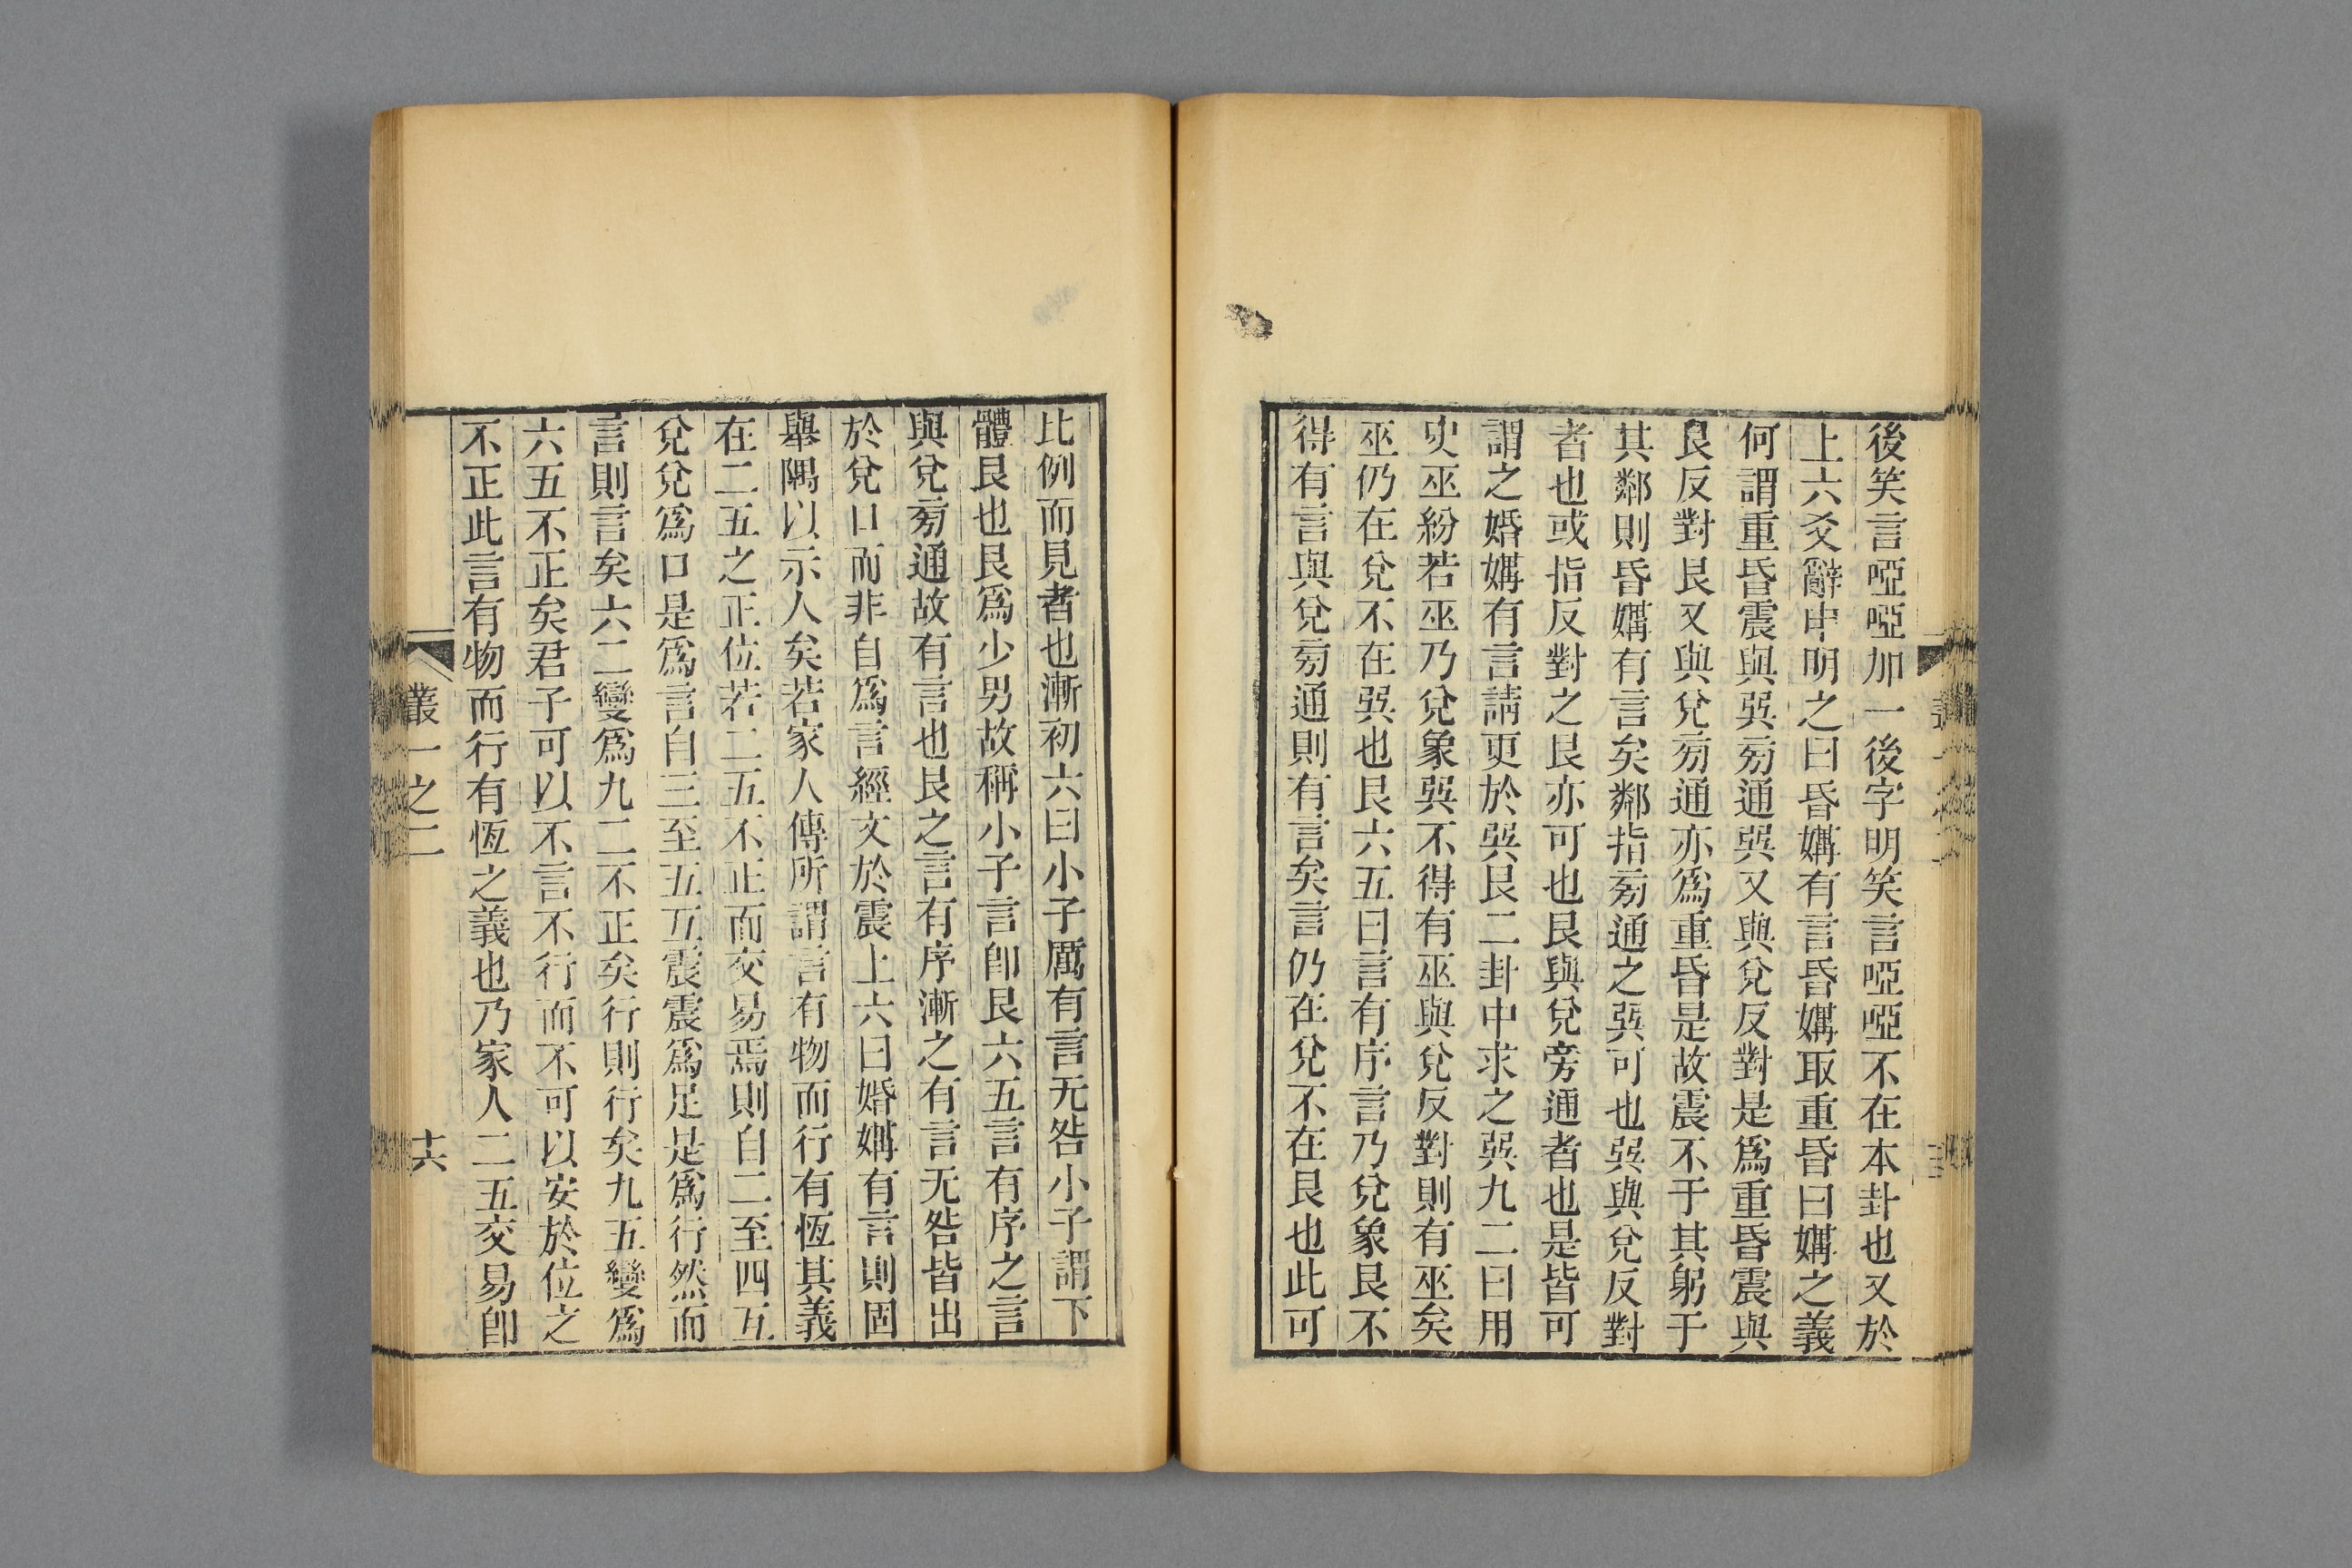 後笑言啞啞加一後字明笑言啞啞不在本卦也又於
上六爻辭申明之曰昏媾有言昏媾取重昏曰媾之義
何謂重昏震與巽㫄通巽又與兌反對是爲重昏震與
艮反對艮又與兌㫄通亦爲重昏是故震不于其躬于
其鄰則昏媾有言矣鄰指㫄通之巽可也巽與兌反對
者也或指反對之艮亦可也艮與兌旁通者也是皆可
謂之婚媾有言請更於巽艮二卦中求之巽九二曰用
史巫紛若巫乃兌象巽不得有巫與兌反對則有巫矣
巫仍在兌不在巽也艮六五曰言有序言乃兌象艮不
得有言與兌㫄通則有言矣言仍在兌不在艮也此可
比例而見者也漸初六曰小子厲有言无咎小子謂下
體艮也艮爲少男故稱小子言卽艮六五言有序之言
與兌㫄通故有言也艮之言有序漸之有言无咎皆出
於兌口而非自爲言經文於震上六曰婚媾有言則固
舉隅以示人矣若家人傳所謂言有物而行有恆其義
在二五之正位若二五不正而交易焉則自二至四互
兌兌爲口是爲言自三至五互震震爲足是爲行然而
言則言矣六二變爲九二不正矣行則行矣九五變爲
六五不正矣君子可以不言不行而不可以安於位之
不正此言有物而行有恆之義也乃家人二五交易卽
叢一之二
十六